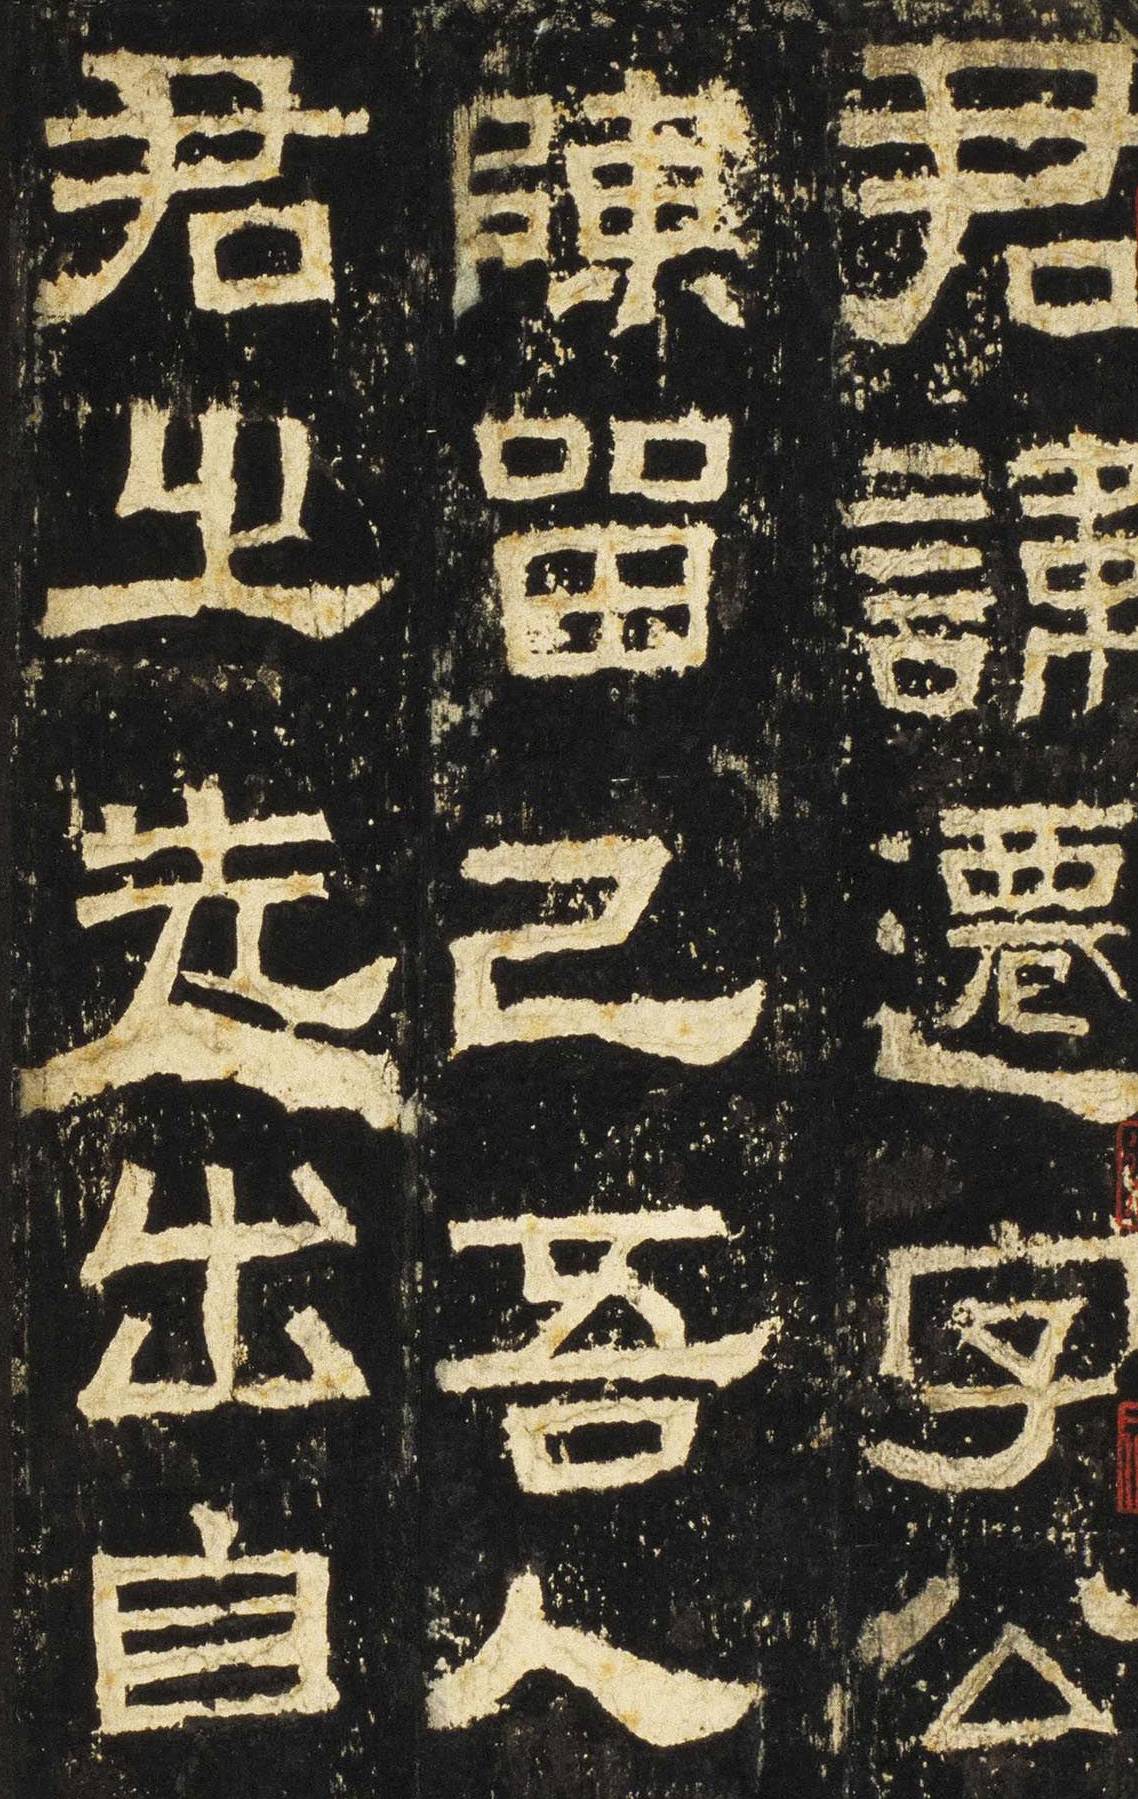 君諱遷字公
陳留己吾人
君之先出自